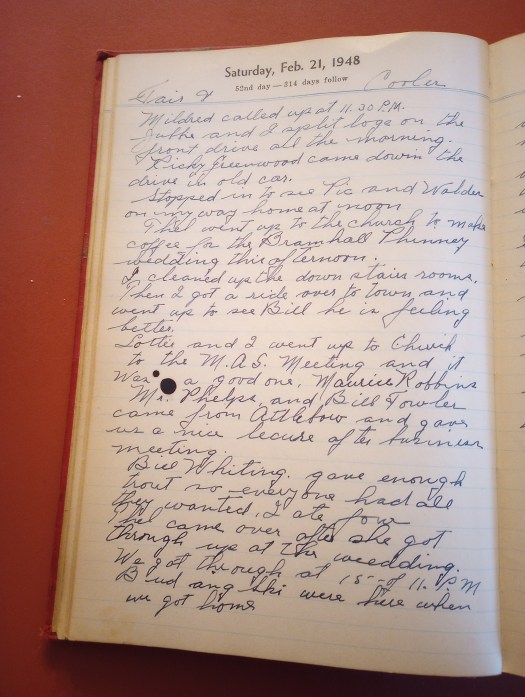 Saturday, Feb. 21, 1948
52nd day—314 days follow
Fair & Cooler
Mildred called up at 11.30 P.M.
and I split logs on the
front drive all the morning.
Ricky Greenwood came down the
drive in old car.
Stopped in to see Pic and Walder
on my way home at noon
Thel went up to the church to make
coffee for the Bramhall Phinney
wedding this afternoon.
I cleaned up the down stairs rooms.
Then I got a ride over to town and
went up to see Bill he is feeling
better.
Lottie and I went up to Church
to the M.A.S. Meeting and it
was a good one. Maurice Robbins
Mr. Phelps, and Bill Fowler
came from Attlebow and gave
us a nice lecure after business
meeting.
Bill Whiting. gave enough
trout so everyone had all
they wanted. I ate four
Thel came over after she got
through up at the weedding.
We got through at 15- of 11. P.M
Bud and Ski were here when
we got home